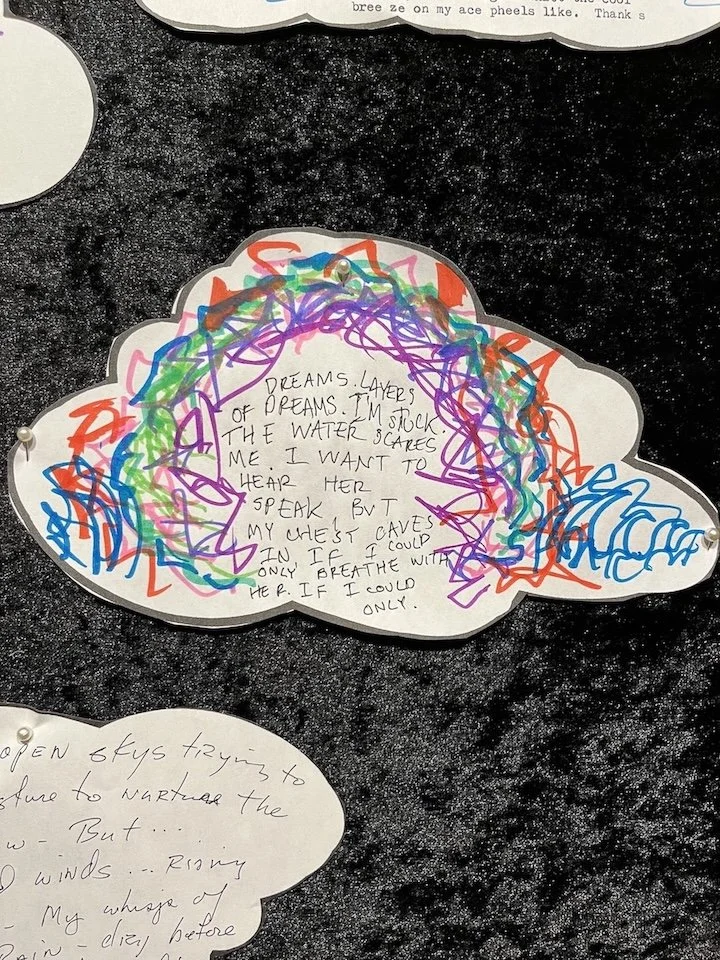 bree ze on my ace pheels like. Thank s
DREAMS. LAYERS
OF DREAMS. I'M STUCK.
THE WATER SCARES
ME. I WANT TO
HEAR HER
SPEAK BUT
MY CHEST CAVES
IN IF I COULD
ONLY BREATHE WITH
HER. IF I COULD
ONLY.
OPEN SKYS trying to
to nurture the
But...
winds... Rising
- My whisp of
Rain - dizy before